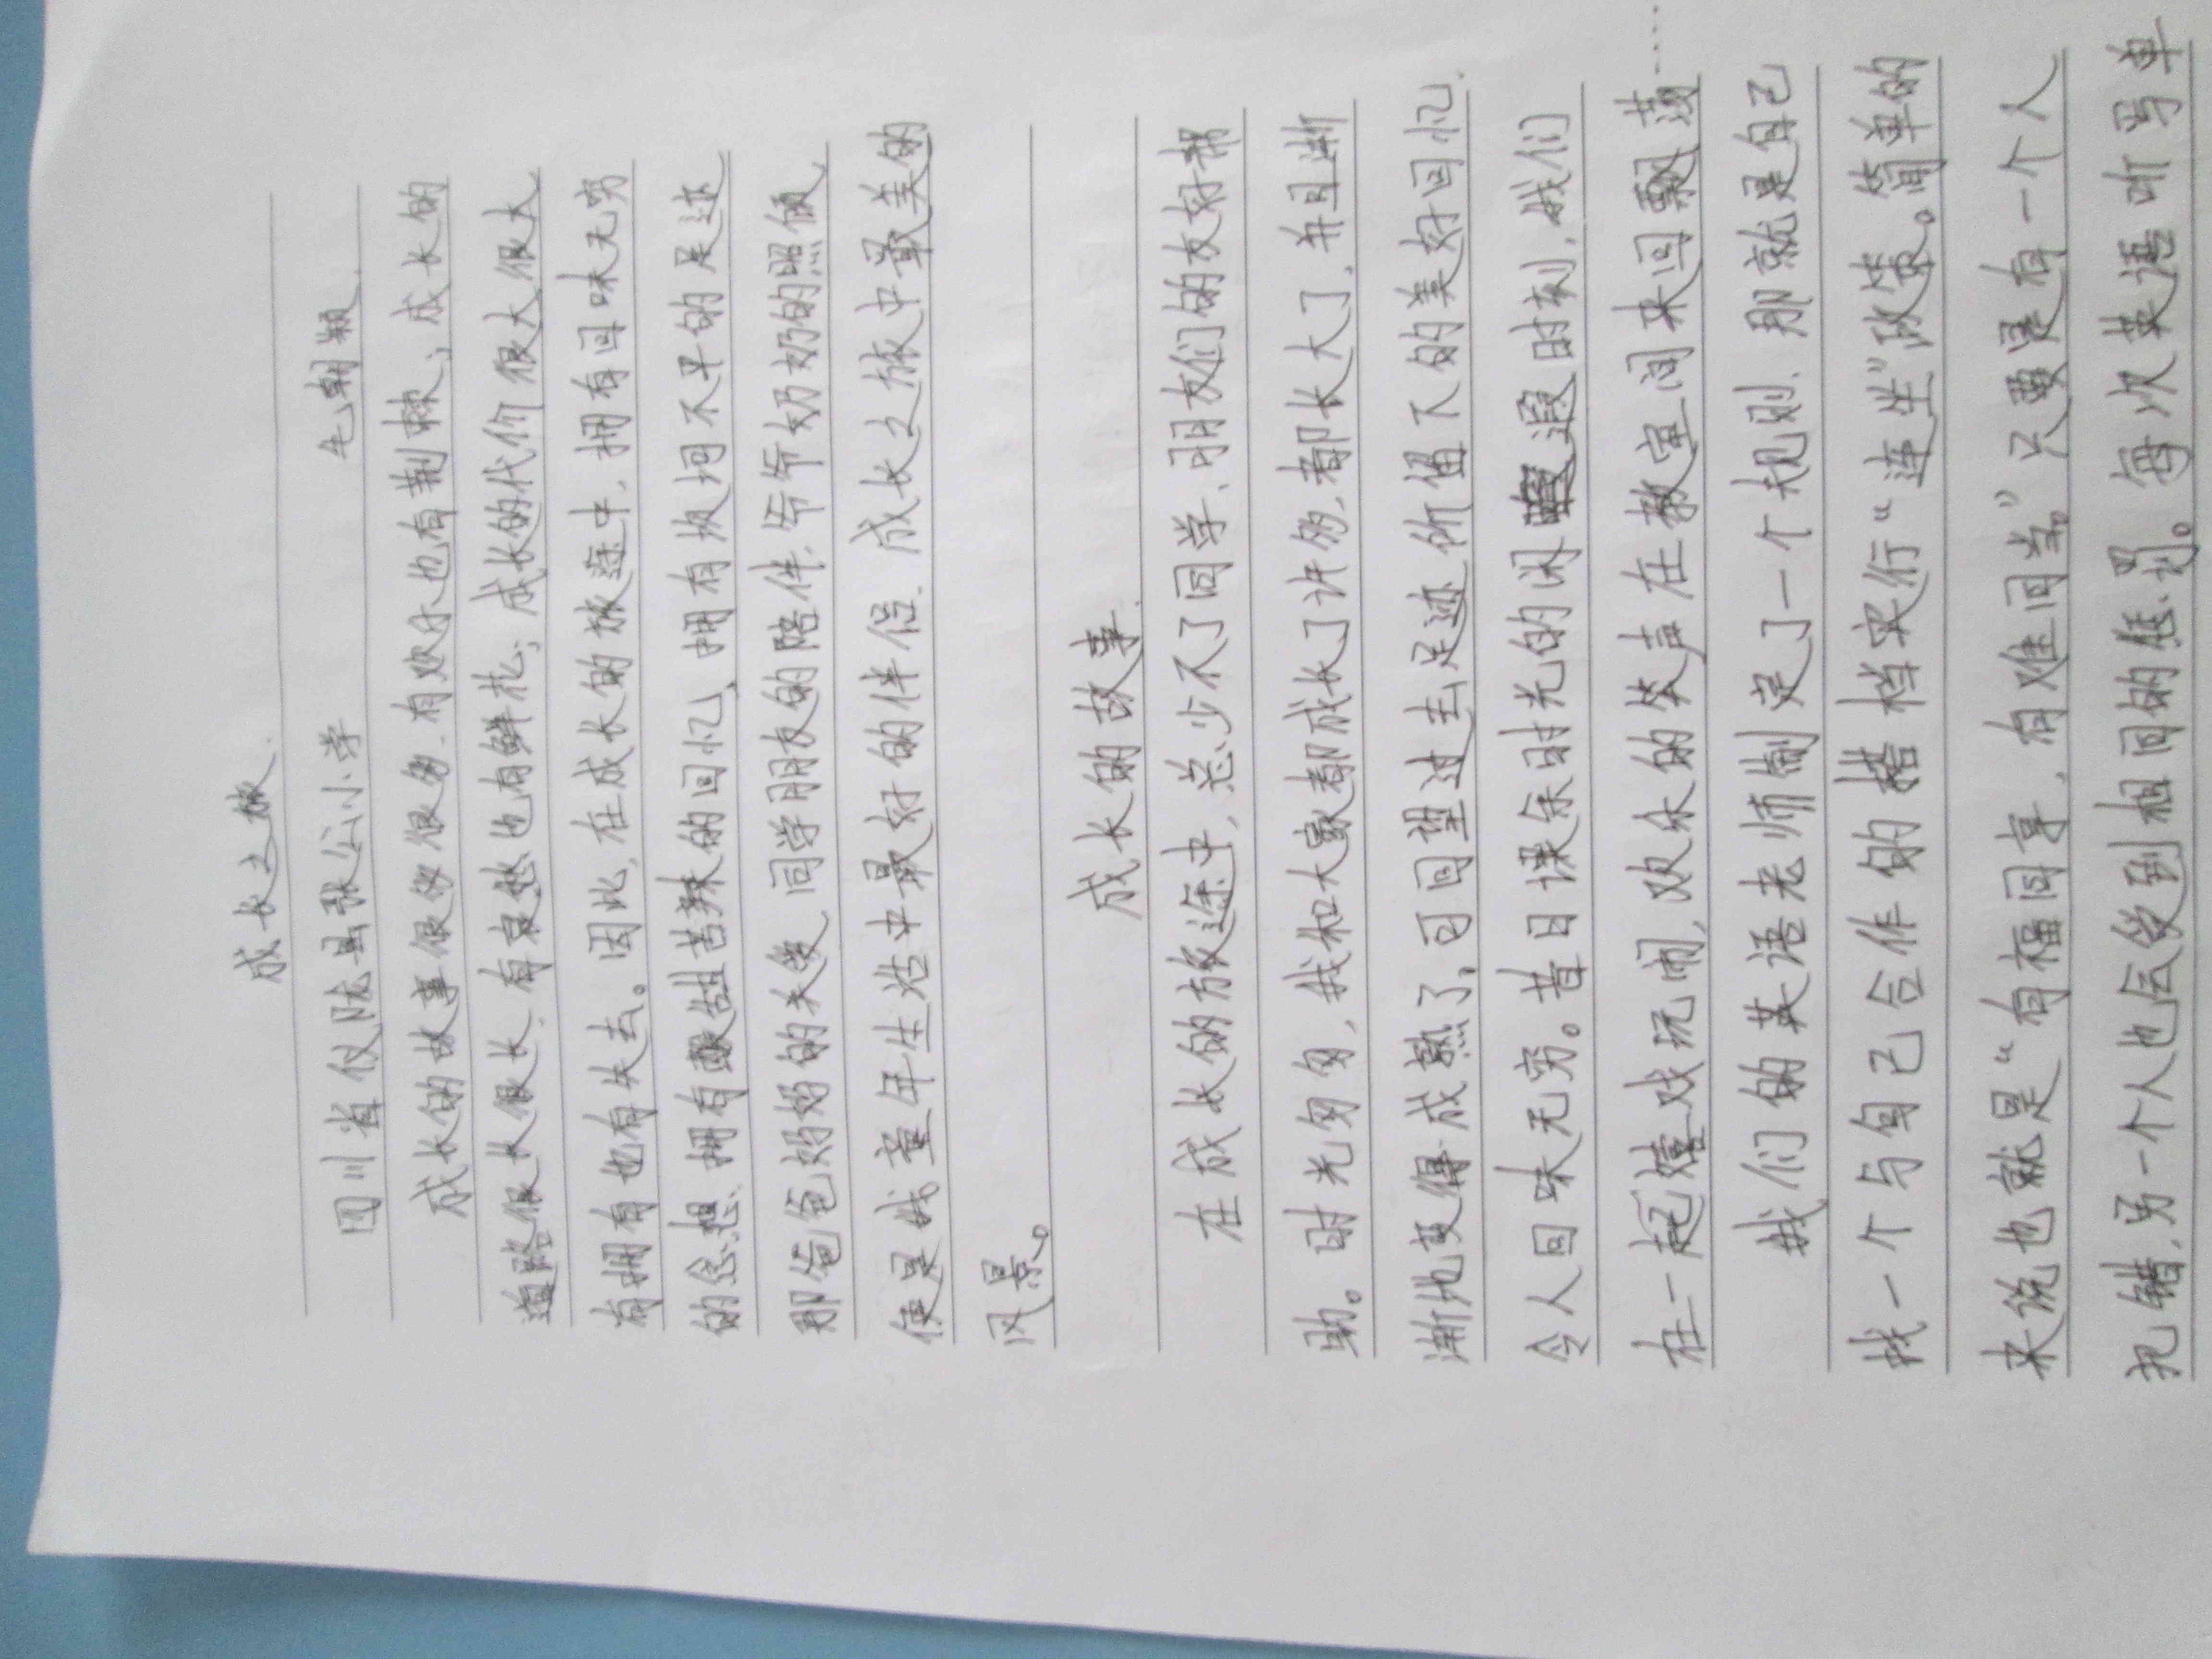 成长之旅.
四川省仪陇县张公小学 毛朝颖.
成长的故事很多很多.有欢乐也有荆棘;成长的
道路很长很长.有哀愁也有鲜花;成长的代价很大很大
有拥有也有失去。因此,在成长的旅途中.拥有回味无穷
的念想.拥有酸甜苦辣的回忆,拥有坎坷不平的足迹
那爸爸妈妈的关爱,同学朋友的陪伴.爷爷奶奶的照顾,
便是我童年生活中最好的伴侣.成长之旅中最美的
风景。
成长的故事.
在成长的旅途中,总少不了同学、朋友们的友好帮
助。时光匆匆,我和大家都成长了许多,都长大了,并且渐
渐地变得成熟了。可回望过去足迹所留下的美好回忆.
令人回味无穷。昔日课余时光的闲遐时刻,我们
在一起嬉戏玩闹,欢乐的笑声在教室间来回飘荡……
我们的英语老师制定了一个规则.那就是自己
找一个与自己合作的搭档实行“连坐”政策。简单的
来说也就是“有福同享,有难同当。”只要是有一个人
犯错,另一个人也会受到相同的惩罚。每次英语听写单